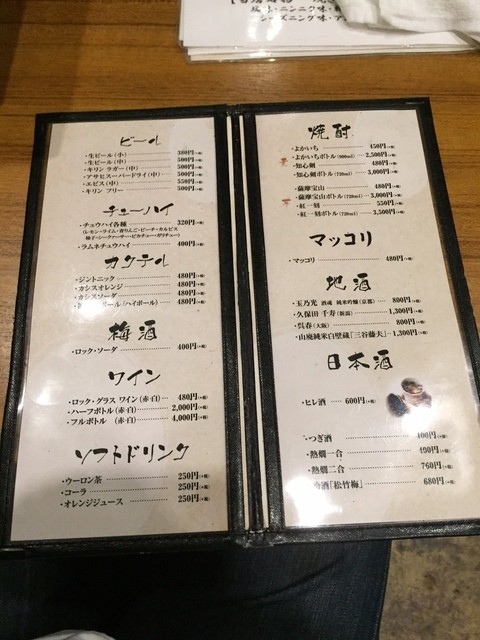 ビール
・生ビール(小) 380円(+税)
・生ビール(中) 500円(+税)
・キリン ラガー(中) 500円(+税)
・アサヒスーパードライ(中) 500円(+税)
・エビス(中) 550円(+税)
・キリン フリー 500円(+税)
チューハイ
・チュウハイ各種 320円(+税)
・ラムネチュウハイ 400円(+税)
カクテル
・ジントニック 480円(+税)
・カシスオレンジ 480円(+税)
・カシスソーダ 480円(+税)
ボール(ハイボール) 480円(+税)
梅酒
・ロック・ソーダ 400円(+税)
ワイン
・ロック・グラス ワイン(赤・白) 480円(+税)
・ハーフボトル(赤・白) 2,000円(+税)
・フルボトル (赤・白) 4,000円(+税)
ソフトドリンク
・ウーロン茶 250円(+税)
・コーラ 250円(+税)
・オレンジジュース 250円(+税)
焼酎
・よかいち 450円(+税)
・よかいちボトル(900ml) 2,500円(+税)
・知心剣 480円(+税)
・知心剣ボトル(720ml) 3,000円(+税)
・薩摩宝山 480円(+税)
・薩摩宝山ボトル(720ml) 3,000円(+税)
・紅一刻 550円(+税)
・紅一刻ボトル(720ml) 3,500円(+税)
マッコリ
・マッコリ 480円(+税)
地酒
・玉乃光 酒魂 純米吟醸(京都) 800円(+税)
・久保田 千寿(新潟) 1,300円(+税)
・呉春(大阪) 800円(+税)
・山廃純米白壁蔵「三谷藤夫」 1,300円(+税)
日本酒
・ヒレ酒 600円(+税)
・つぎ酒 400円(+税)
・熱燗一合 490円(+税)
・熱燗二合 760円(+税)
酒「松竹梅」 680円(+税)